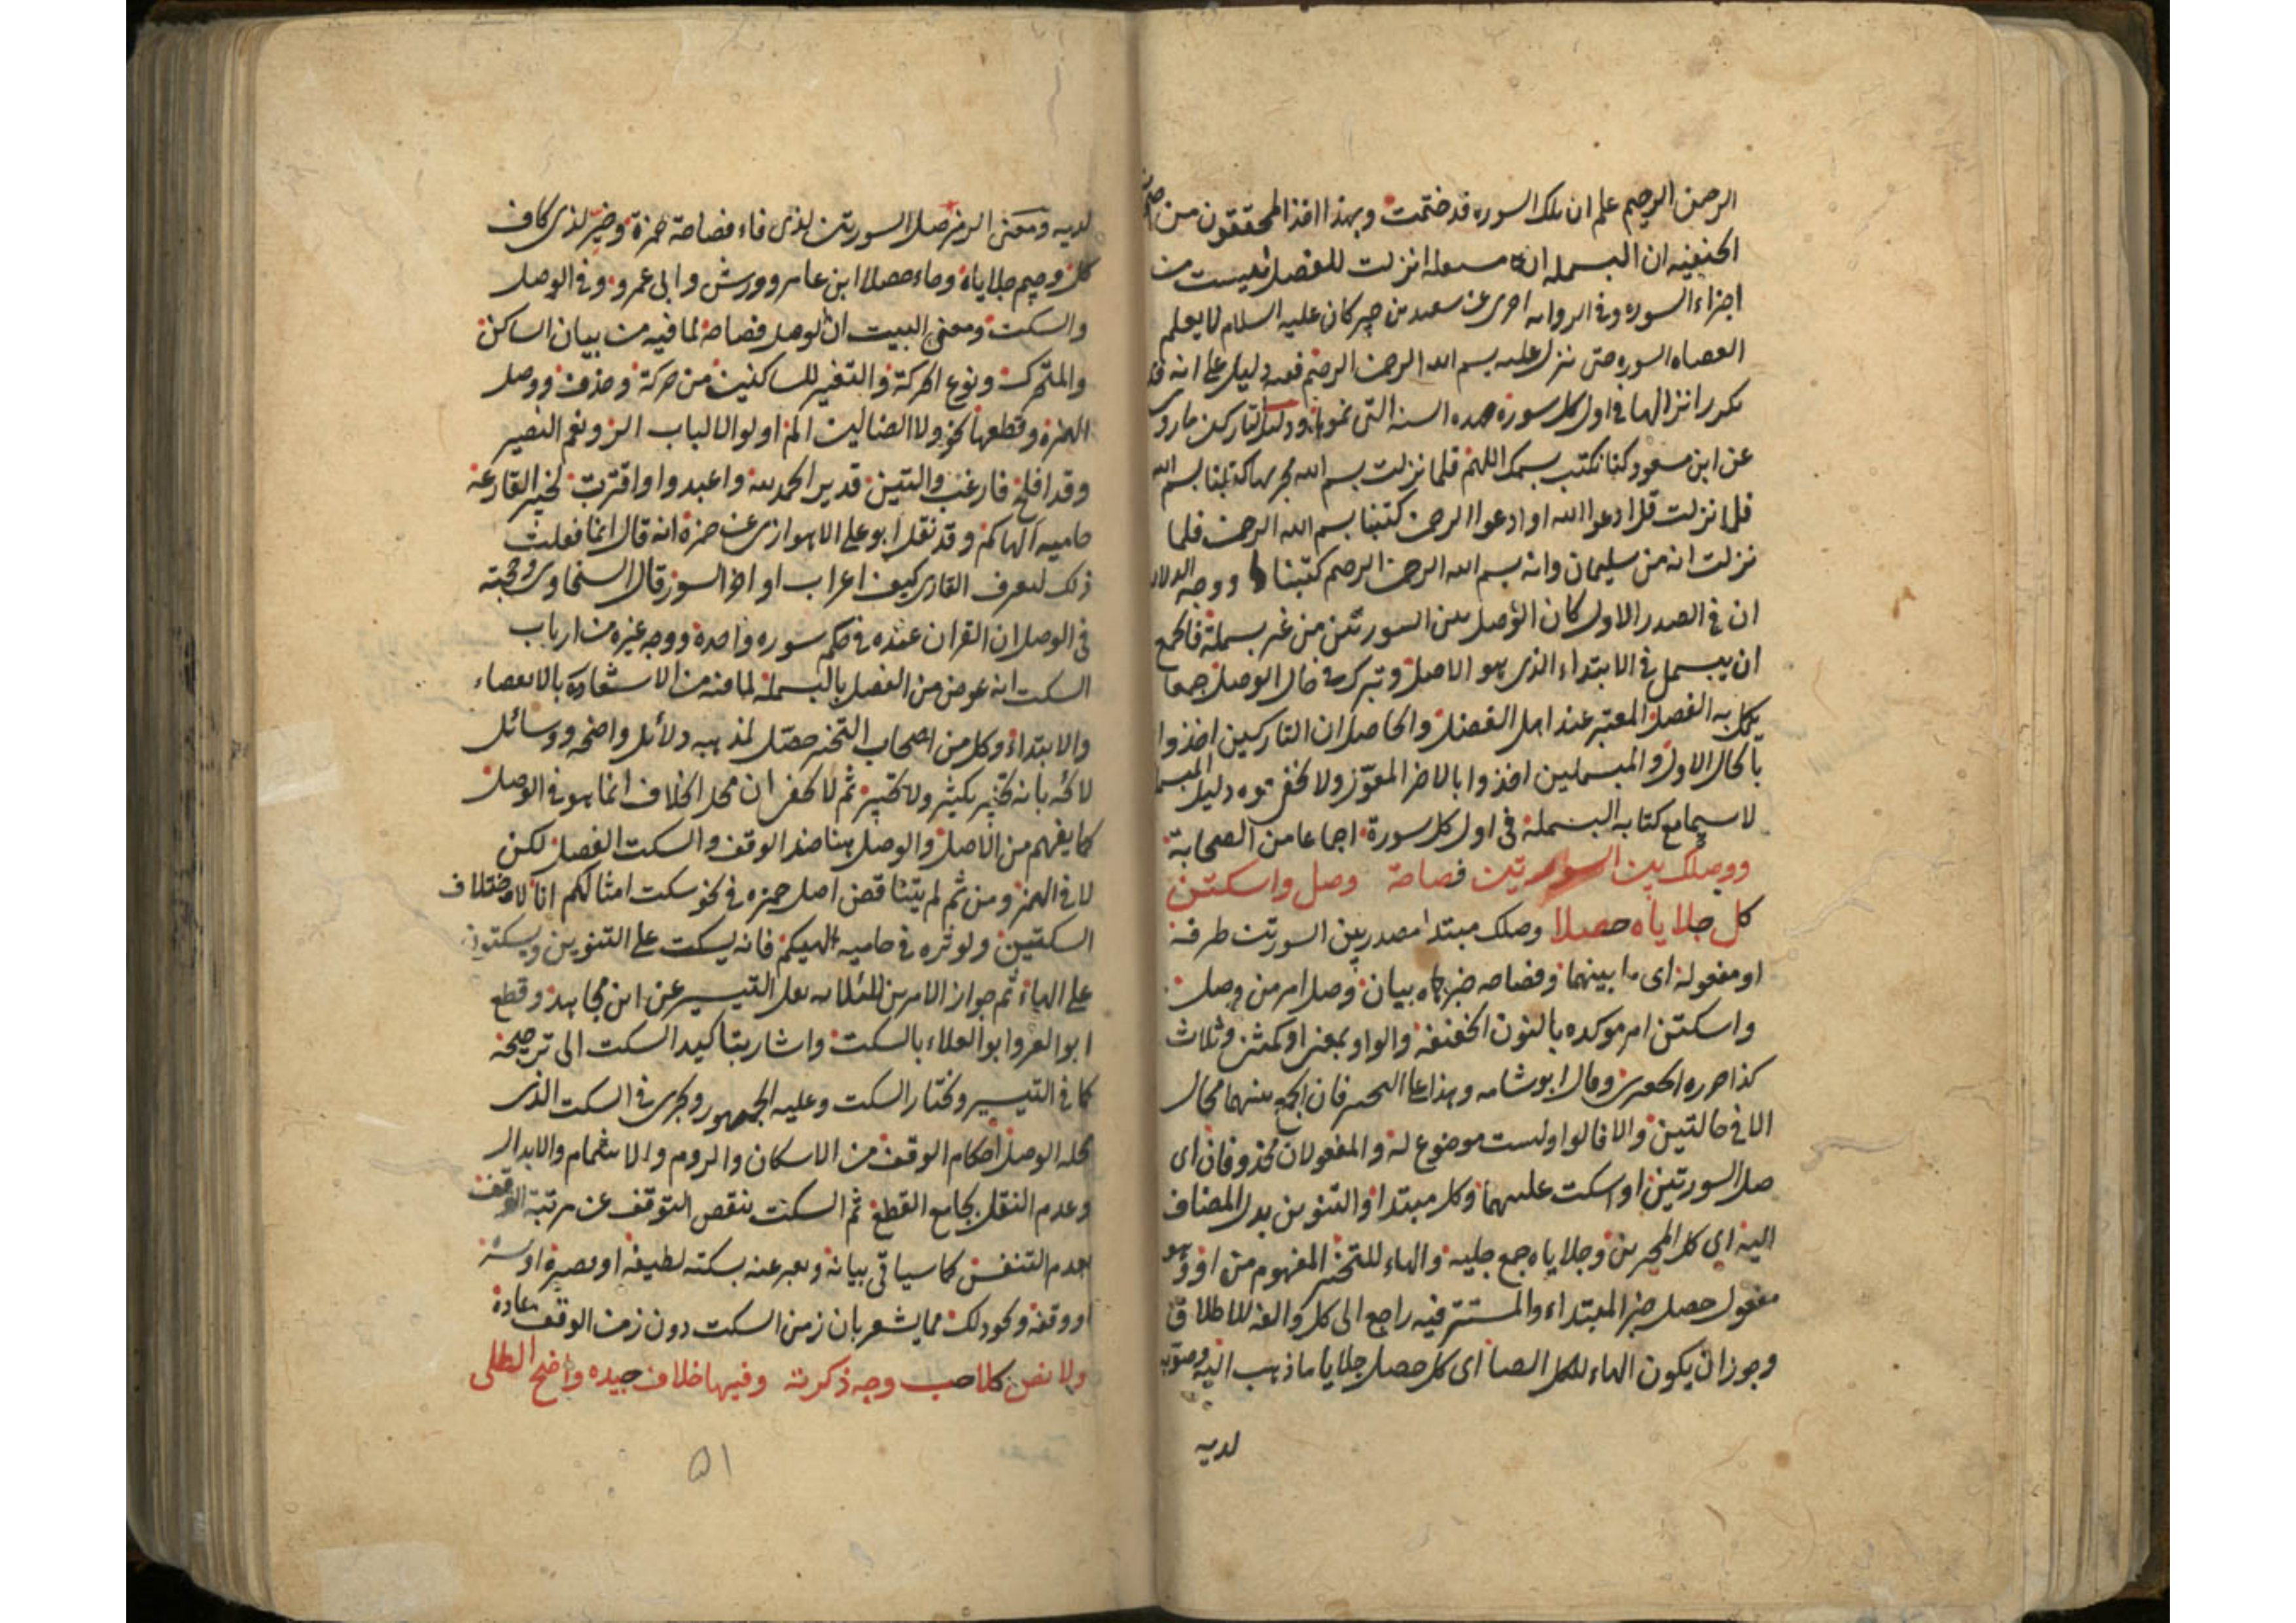 الرحمن الرحيم علم ان تلك السوره قد ختمت وبهذا اخذ المحققون من
الحنفيه ان البسمله انزلت للفصل ليست من
اجزاء السوره وفي الروايه اخرى عن سعيد بن جبير كان عليه السلام لا يعلم
انقضاء السوره حتى نزل عليه بسم الله الرحمن الرحيم ففيه دليل على انه قد
تكرر انزالها في اول كل سورة ودليل التاركين ما روى
عن ابن مسعود كنا نكتب بسمك اللهم فلما نزلت بسم الله مجريها كتبنا بسم الله
فلما نزلت قل ادعوا الله او ادعوا الرحمن كتبنا بسم الله الرحمن فلما
نزلت انه من سليمان وانه بسم الله الرحمن الرحيم كتبنا ووجه الدلاله
ان في الصدر الاول كان الوصل بين السورتين من غير بسملة فالجمع
ان يبسمل في الابتداء الذي هو الاصل وتترك في حال الوصل جمعا
يكمل به الفصل المعتبر عند اهل الفضل والحاصل ان التاركين اخذوا
بالحال الاول والمبسملين اخذوا بالاخر المعوّل ولا يخفى قوه دليل المبسمل
لا سيما مع كتابه البسملة في اول كل سورة اجماعا من الصحابة
ووصلك بين السورتين فصاحة وصل واسكتن
كل جلاياه حصلا وصلك مبتدا مصدر بين السورتين ظرفه
او مفعوله اى ما بينهما وفصاحه خبره بيان وصل امر من وصل
واسكتن امر موكده بالنون الخفيفه والواو بمعنى او كمثنى وثلاث
كذا حرره الجعبرى وقال ابو شامه وهذا على التخيير فان الجمع بينهما محال
الا في حالتين والا فالواو ليست موضوع له والمفعولان محذوفان اى
صل السورتين او اسكت عليهما وكل مبتدا والتنوين بدل المضاف
اليه اى كل المخيرين وجلاياه جمع جليه والهاء للتخيير المفهوم من او وهو
مفعول حصل خبر المبتداء والمستتر فيه راجع الى كل والفه للاطلاق
وجوز ان يكون الهاء لكل ايضا اى كل حصل جلايا ما ذهب اليه وصوّبه
لديه
لديه ومعنى الرمز صل السورتين لذى فاء فصاحة حمزة وخيّر لذى كاف
كل وجيم جلاياه وحاء حصلا ابن عامر وورش وابى عمرو وفي الوصل
والسكت ومعنى البيت ان الوصل فصاحة لما فيه من بيان الساكن
والمتحرك ونوع الحركة والتغير للساكنين من حركة وحذف ووصل
الهمزه وقطعها نحو ولا الضالين الم اولوا الالباب الر ونعم النصير
وقد افلح فارغب والتين قدير الحمد لله واعبدوا واقتربت لخبير القارعة
حاميه الهاكم وقد نقل ابو على الاهوازى عن حمزه انه قال انما فعلت
ذلك ليعرف القارى كيف اعراب اواخر السور قال السخاوى وحجته
في الوصل ان القران عنده في حكم سوره واحدة ووجه غيره من ارباب
السكت انه عوض من الفصل بالبسمله لما فيه من الاشعار بالانقضاء
والابتداء وكل من اصحاب التخيير حصّل لمذهبه دلائل واضحه ووسائل
لائحه بانه تخيير ثم لا يخفى ان محل الخلاف انما هو في الوصل
كما يفهم من الاصل والوصل هنا ضد الوقف والسكت الفصل لكن
لا في الهمز ومن ثم لم يتناقض اصل حمزه في نحو سكت امثالكم انا لاختلاف
السكتين ولو تره في حاميه الهيكم فانه يسكت على التنوين ويسكتون
على الهاء ثم جواز الامرين للثلاثه نقل التيسير عن ابن مجاهد وقطع
ابو العز وابو العلاء بالسكت واشار بتاكيد السكت الى ترجيحه
كما في التيسير ونختار السكت وعليه الجمهور ويجرى في السكت الذى
محله الوصل احكام الوقف من الاسكان والروم والاشمام والابدال
وعدم النقل بجامع القطع ثم السكت ينقص التوقف عن مرتبة الوقف
بعدم التنفس كما سياتي بيانه ويعبر عنه بسكته لطيفه او يسيره
او وقفه ونحو ذلك مما يشعر بان زمن السكت دون زمن الوقف عادة
ولا نص كلا حب وجه ذكرته وفيها خلاف جيده واضح الطلى
٥١